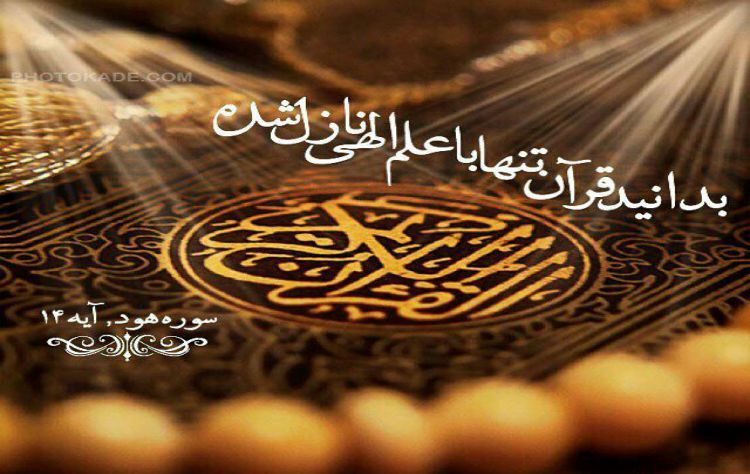 PHOTOKADE.COM
بدانید قرآن تنها با علم الهی نازل شده
القرآن الكريم
سوره هود, آیه ۱۴